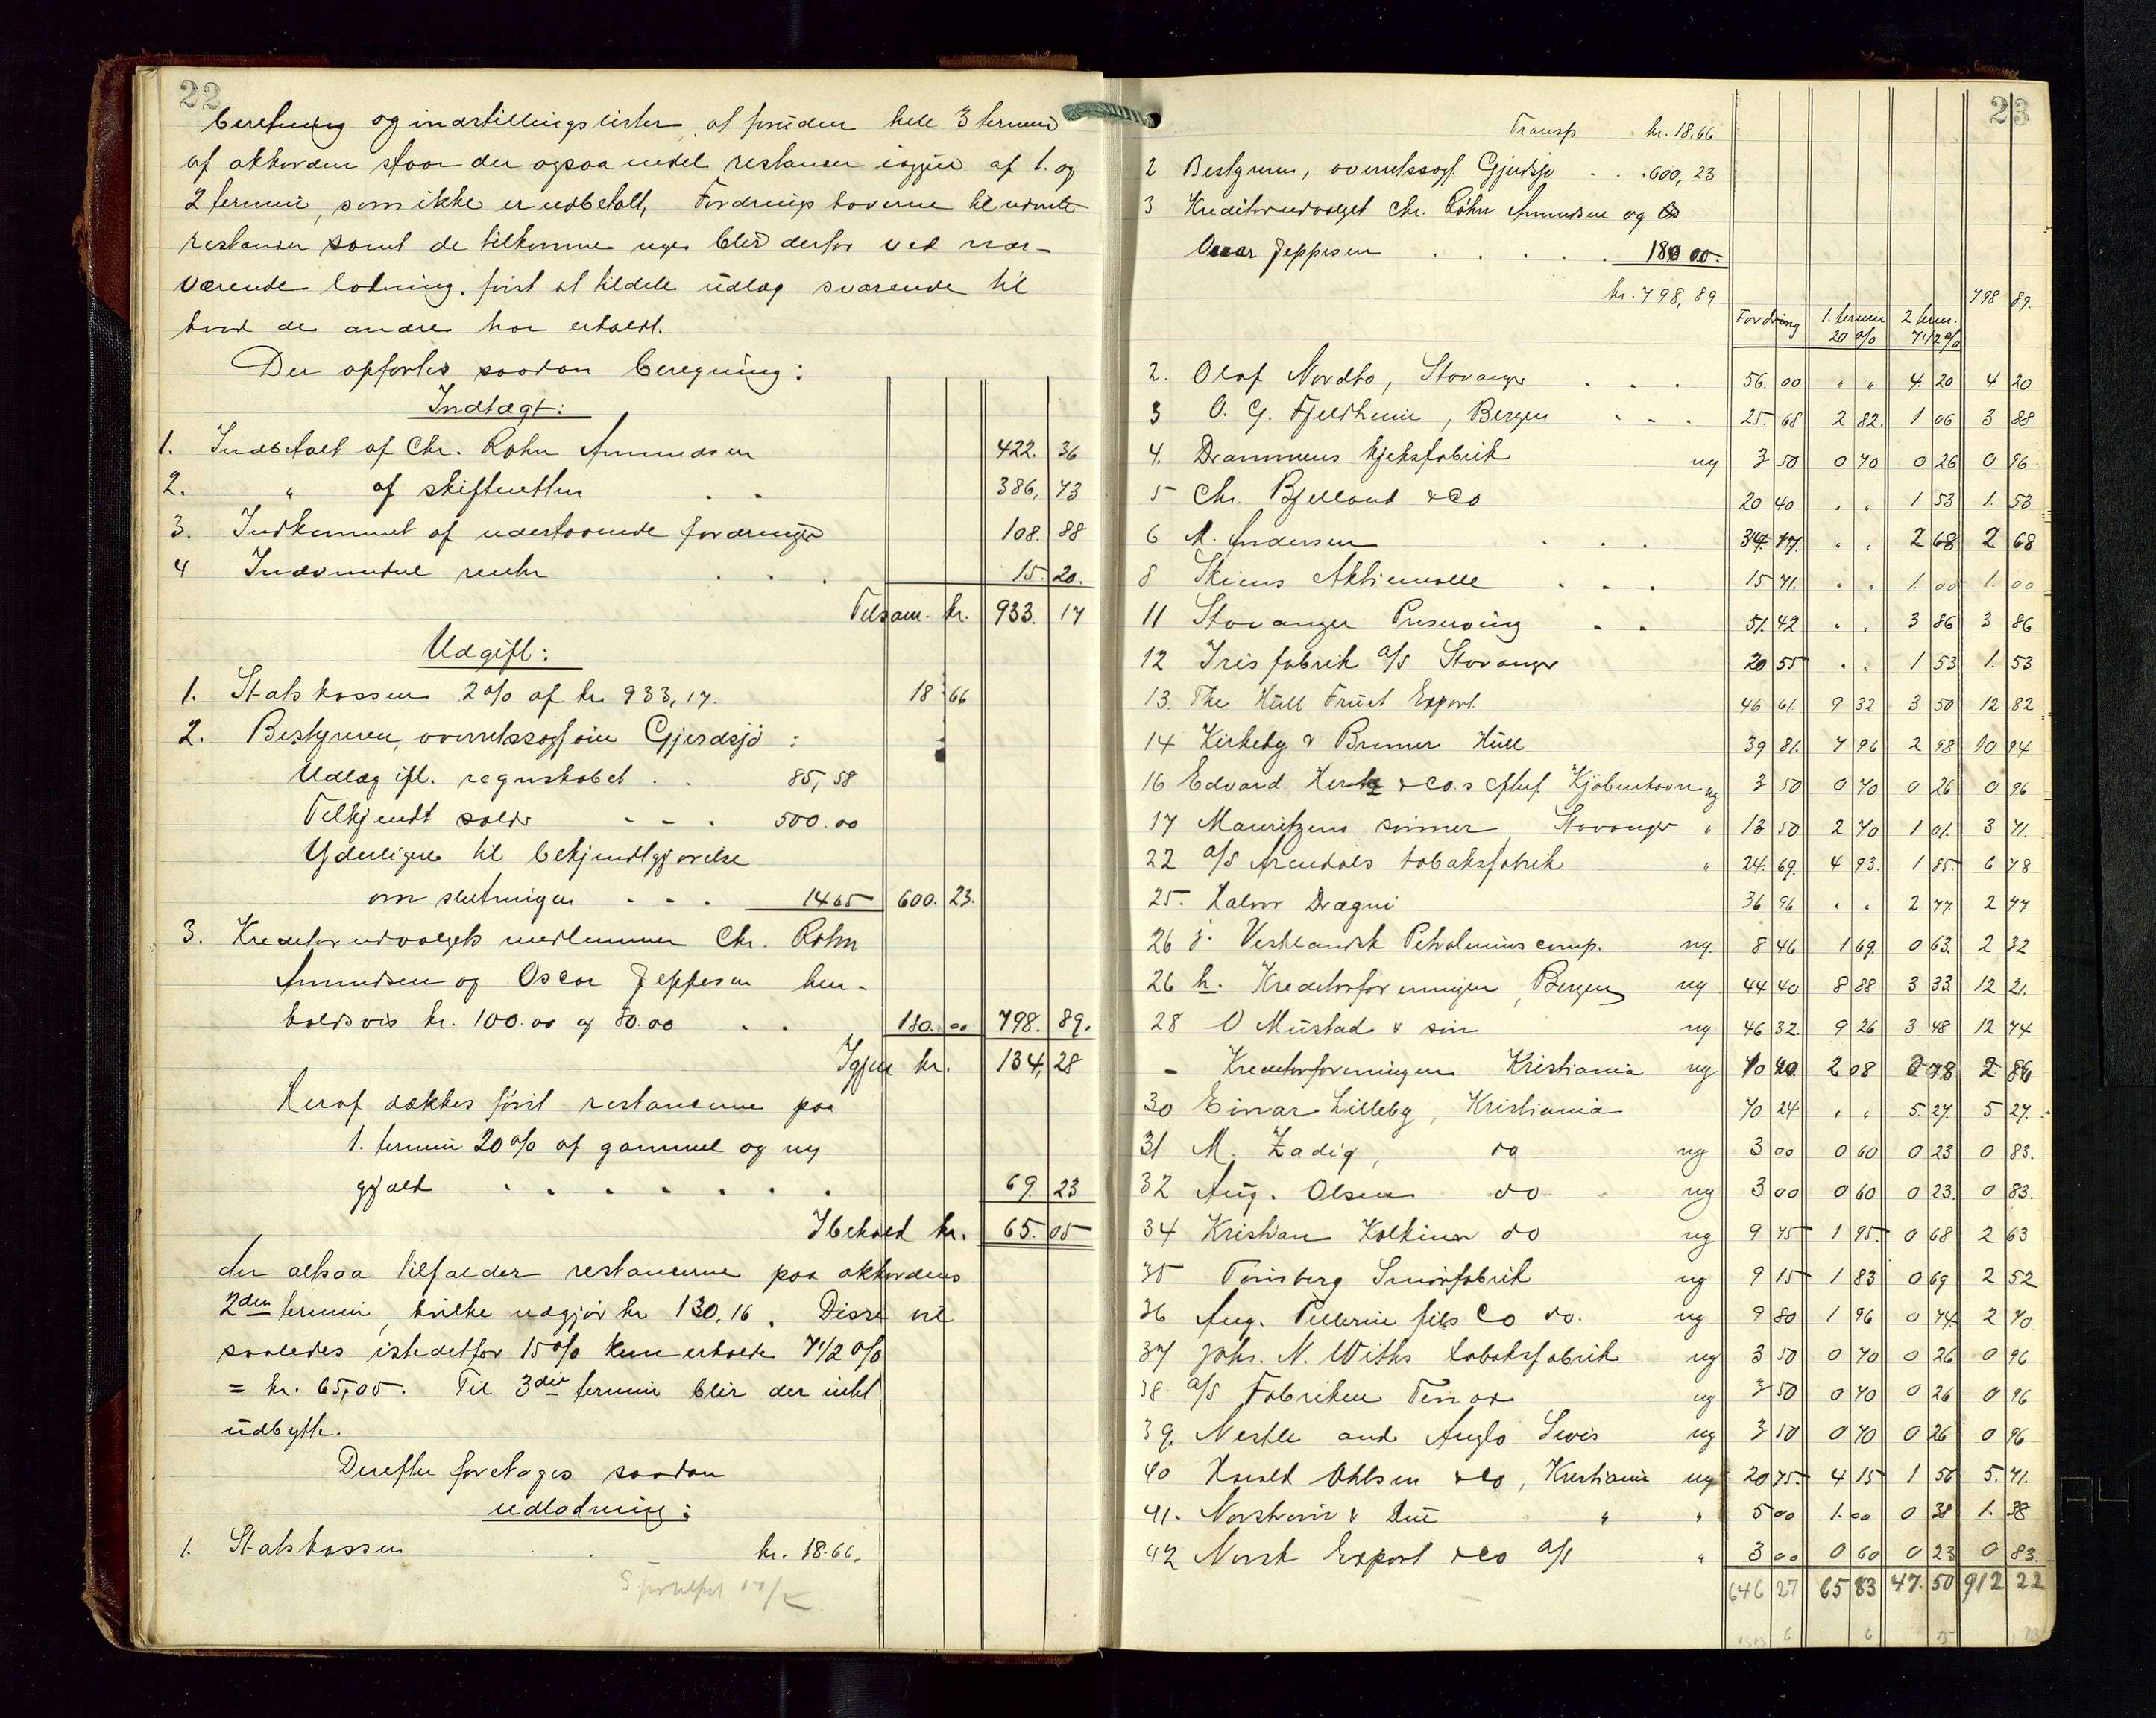 22
beretning og indstillingslister, at foruden hele 3 termin
af akkorden staar der ogsaa endel restancer igjen af 1. og
2 termin, som ikke er udbetalt, Fordringshaverne til udente
restancer samt de tilkomne nye blir derfor ved nær-
værende lodning først at tildele udlæg svarende til
hvad de andre har erholdt.
Der opførtes saadan beregning:
Indtægt:
1. Indbetalt af Chr. Røhn Amundsen 422. 36
2. " af skifteretten . . 386, 73
3. Indkommet af udestaaende fordringer 108. 88
4 Indvundne renter . . . 15. 20.
Tilsam. kr. 933. 17
Udgift:
1. Statskassen 2 % af kr 933,17. 18 66
2. Bestyreren, overretssagfører Gjerdsjø :
Udlæg ifl. regnskabet . . 85,58
Tilkjendt salær . . . 500.00
Yderligere til bekjendtgjørelse
om slutningen . . . 14 65 600. 23.
3. Kreditorudvalgets medlemmer Chr. Røhn
Amundsen og Oscar Jeppesen hen-
holdsvis kr. 100.00 og 80.00 . . 180. 00 798. 89.
Igjen kr. 134, 28
Heraf dækkes først restancerne paa
1. termin 20 % af gammel og ny
gjæld . . . . . . . 69. 23
Ibehold kr. 65. 05
der altsaa tilfalder restancerne paa akkordens
2den termin, hvilke udgjør kr 130,16. Disse vil
saaledes istedetfor 15 % kun erholde 7 1/2 %
= kr. 65,05. Til 3die termin blir der intet
udbytte.
Derefter foretages saadan
udlodning:
1. Statskassen . kr. 18.66.
23
Transp kr. 18.66
2 Bestyreren, overretssagf. Gjerdsjø . . . 600,23
3 Kreditorudvalget Chr. Røhn Amundsen og
Oscar Jeppesen . . . . . 180 00.
kr. 798,89 798 89.
Fordring 1. termin 2 term.
20 % 7 1/2 %
2. Olaf Nordbø, Stavanger . . . 56. 00 " " 4. 20 4. 20
3 O. G. Fjeldheim, Bergen . . . 25. 68 2 82. 1 06 3 88
4. Drammens Kjeksfabrik ny 3 50 0 70 0 26 0 96
5 Chr. Bjelland & Co 20 40 " " 1 53 1. 53
6 M. Andersen . . . 34. 77. " " 2 68 2 68
8 Skiens Aktiemølle . . . 15 71. " " 1. 00 1. 00
11 Stavanger Preserving . . 51. 42 " " 3 86 3 86
12 Irisfabrik a/s Stavanger 20 55 " " 1 53 1. 53
13. The Hull Fruit Export. 46 61. 9 32 3 50 12 82
14 Kirkeby & Brunner Hull 39 81. 7 96 2 98 10 94
16 Edvard & Co.s eftef Kjøbenhavn ny 3 50 0 70 0 26 0 96
17 Mauritzens sønner, Stavanger " 13 50 2 70 1 01. 3 71.
22 a/s Arendals tobaksfabrik " 24. 69. 4 93. 1 85. 6 78
25. Halvor Drægni 36 96 " " 2 77 2 77
26 j. Vestlandsk Petroleums comp. ny. 8 46 1 69. 0 63. 2 32
26 h. Kreditorforeningen, Bergen ny 44 40 8 88 3 33. 12 21.
28 O Mustad & søn ny 46 32. 9 26 3 48 12 74
- Kreditorforeningen Kristiania ny 10 40. 2 08 0 78 2 86
30 Einar Lilleby, Kristiania 70 24 " " 5. 27. 5 27.
31 M. Zadig, do ny 3 00 0 60 0 23 0 83.
32 Aug. Olsen do ny 3 00 0 60 0 23. 0 83.
34 Kristian do ny 9 75 1 95. 0 68 2 63
35 Tønsberg Smørfabrik ny 9 15 1 83 0 69 2 52
36 Aug. Pellerin fils Co do. ny 9 80 1 96 0 74. 2 70
37 Johs. N. Withs tobaksfabrik ny 3 50 0 70 0 26 0 96
38 a/s Fabriken ny 3 50 0 70 0 26 0 96
39. Nestle and Anglo Swis ny 3 50 0 70 0 26 0 96
40 Harald Ohlsen & Co, Kristiania ny 20 75 4 15 1 56 5. 71.
41. & Due " " 5 00 1. 00 0 38 1. 38
42 Norsk Export & Co a/s " 3 00 0 60 0 23 0 83.
646 27 65 83 47. 50 912 22